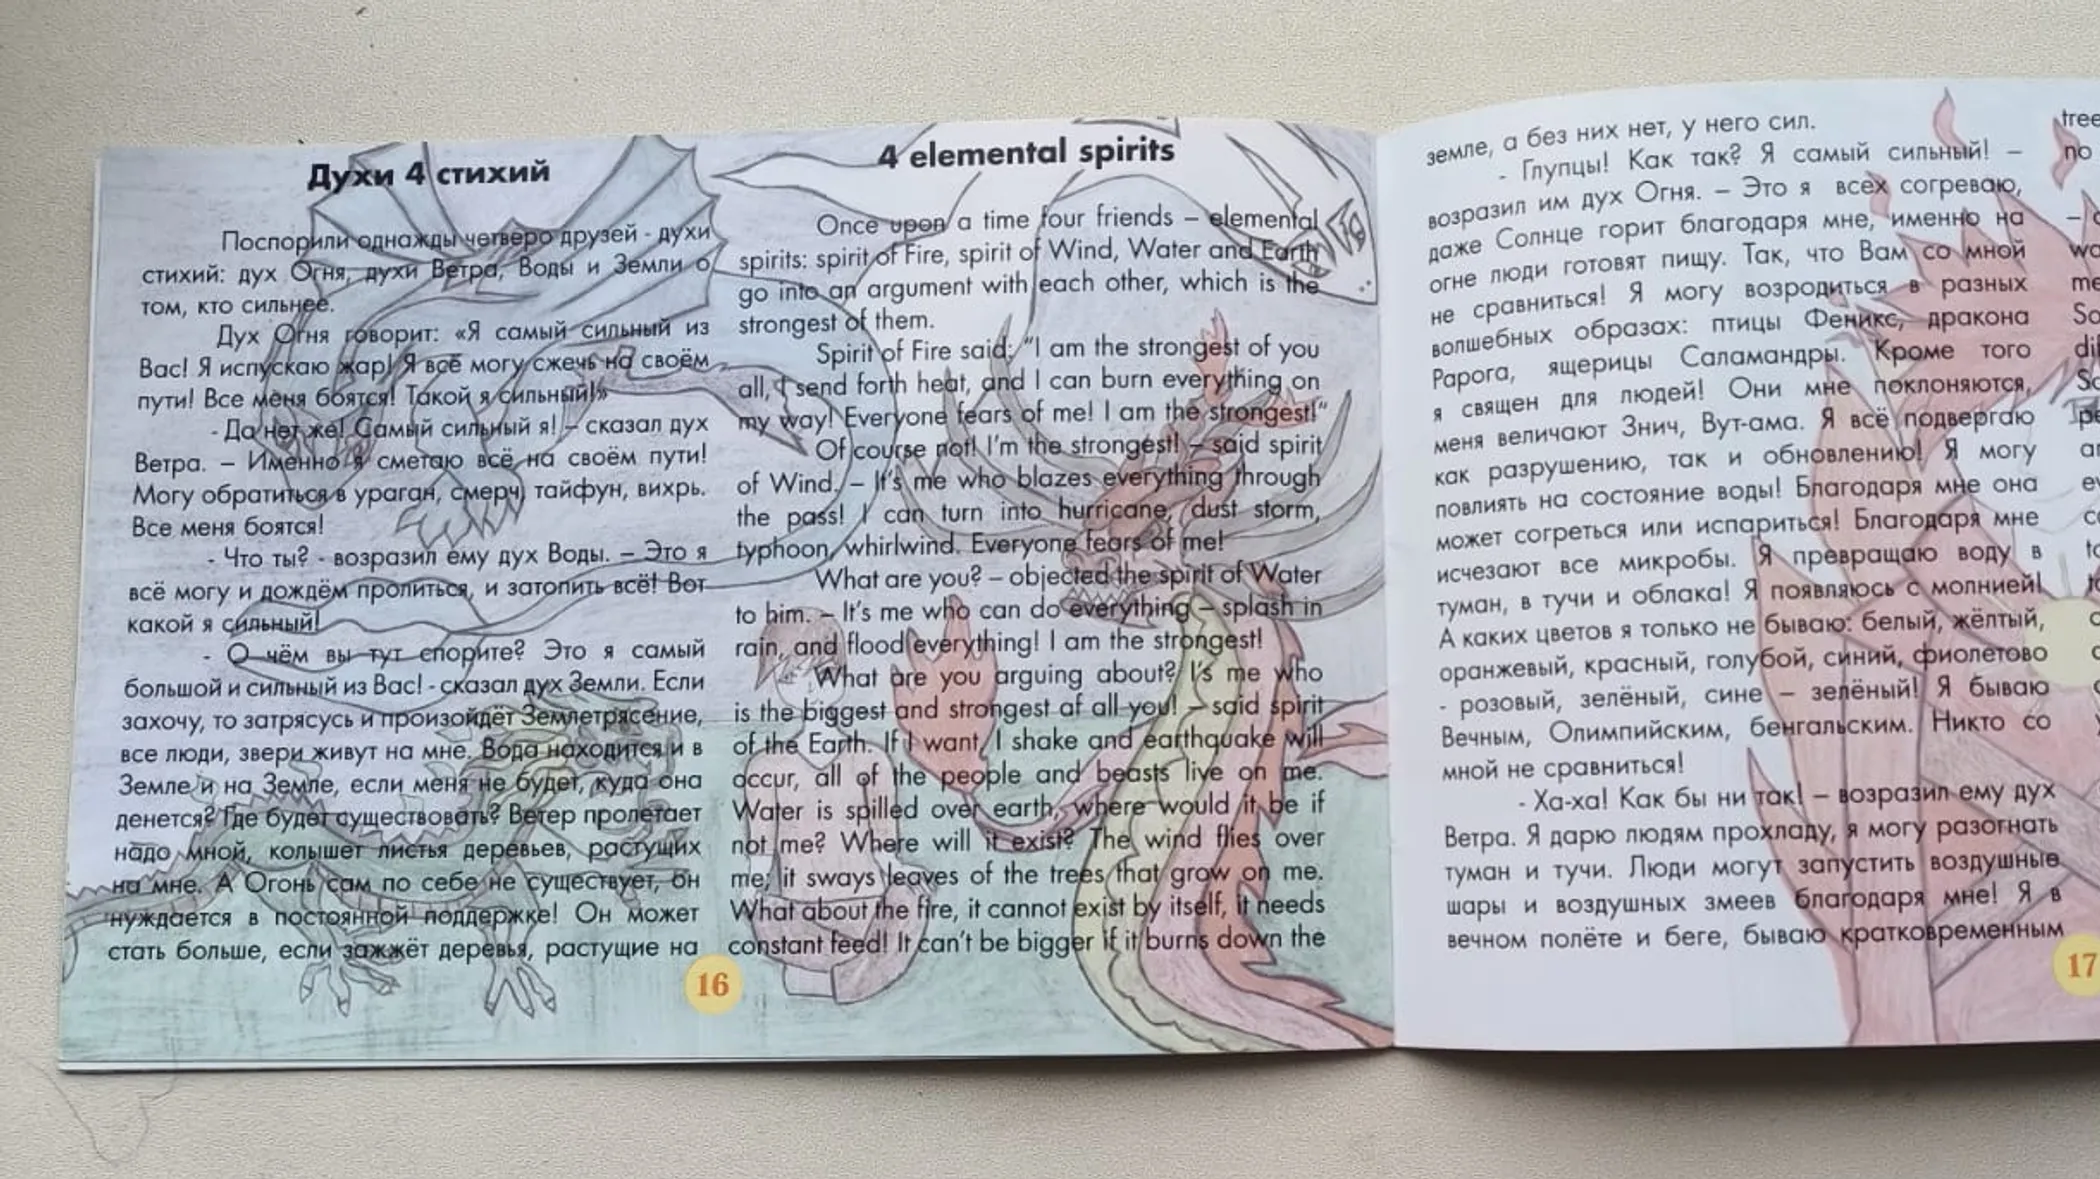 Духи 4 стихий
Поспорили однажды четверо друзей - духи
стихий: дух Огня, духи Ветра, Воды и Земли о
том, кто сильнее.
Дух Огня говорит: «Я самый сильный из
Вас! Я испускаю жар! Я всё могу сжечь на своём
пути! Все меня боятся! Такой я сильный!»
- Да нет же! Самый сильный я! – сказал дух
Ветра. – Именно я сметаю всё на своём пути!
Могу обратиться в ураган, смерч, тайфун, вихрь.
Все меня боятся!
- Что ты? - возразил ему дух Воды. – Это я
всё могу и дождём пролиться, и затопить всё! Вот
какой я сильный!
- О чём вы тут спорите? Это я самый
большой и сильный из Вас! - сказал дух Земли. Если
захочу, то затрясусь и произойдёт Землетрясение,
все люди, звери живут на мне. Вода находится и в
Земле и на Земле, если меня не будет, куда она
денется? Где будет существовать? Ветер пролетает
надо мной, колышет листья деревьев, растущих
на мне. А Огонь сам по себе не существует, он
нуждается в постоянной поддержке! Он может
стать больше, если зажжёт деревья, растущие на
16
4 elemental spirits
Once upon a time four friends – elemental
spirits: spirit of Fire, spirit of Wind, Water and Earth
go into an argument with each other, which is the
strongest of them.
Spirit of Fire said: "I am the strongest of you
all, I send forth heat, and I can burn everything on
my way! Everyone fears of me! I am the strongest!"
Of course not! I'm the strongest! – said spirit
of Wind. – It's me who blazes everything through
the pass! I can turn into hurricane, dust storm,
typhoon, whirlwind. Everyone fears of me!
What are you? – objected the spirit of Water
to him. – It's me who can do everything – splash in
rain, and flood everything! I am the strongest!
What are you arguing about? I's me who
is the biggest and strongest of all you! – said spirit
of the Earth. If I want, I shake and earthquake will
occur, all of the people and beasts live on me.
Water is spilled over earth, where would it be if
not me? Where will it exist? The wind flies over
me, it sways leaves of the trees that grow on me.
What about the fire, it cannot exist by itself, it needs
constant feed! It can't be bigger if it burns down the
земле, а без них нет, у него сил.
- Глупцы! Как так? Я самый сильный! –
возразил им дух Огня. – Это я всех согреваю,
даже Солнце горит благодаря мне, именно на
огне люди готовят пищу. Так, что Вам со мной
не сравниться! Я могу возродиться в разных
волшебных образах: птицы Феникс, дракона
Рарога, ящерицы Саламандры. Кроме того
я священ для людей! Они мне поклоняются,
меня величают Знич, Вут-ама. Я всё подвергаю
как разрушению, так и обновлению! Я могу
повлиять на состояние воды! Благодаря мне она
может согреться или испариться! Благодаря мне
исчезают все микробы. Я превращаю воду в
туман, в тучи и облака! Я появляюсь с молнией!
А каких цветов я только не бываю: белый, жёлтый,
оранжевый, красный, голубой, синий, фиолетово
- розовый, зелёный, сине – зелёный! Я бываю
Вечным, Олимпийским, бенгальским. Никто со
мной не сравниться!
- Ха-ха! Как бы ни так! – возразил ему дух
Ветра. Я дарю людям прохладу, я могу разогнать
туман и тучи. Люди могут запустить воздушные
шары и воздушных змеев благодаря мне! Я в
вечном полёте и беге, бываю кратковременным
17
tree
no